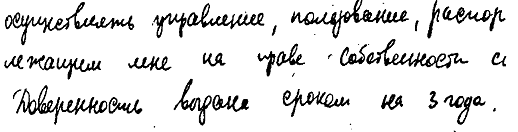 осуществлять управление, пользование, распор
лежащим мне на праве собственности
Доверенность выдана сроком на 3 года.